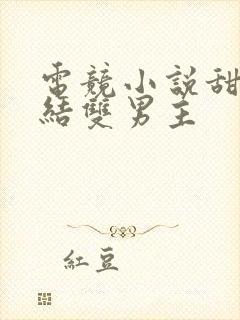 電競小說甜
結雙男主
紅豆